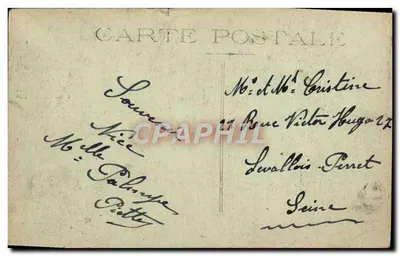 CARTE POSTALE
Souvenir
Nice
Melle Palmyre
Piette
Mr et Md Cristine
27 Rue Victor Hugo 27
Levallois-Perret
Seine
CPAPHIL